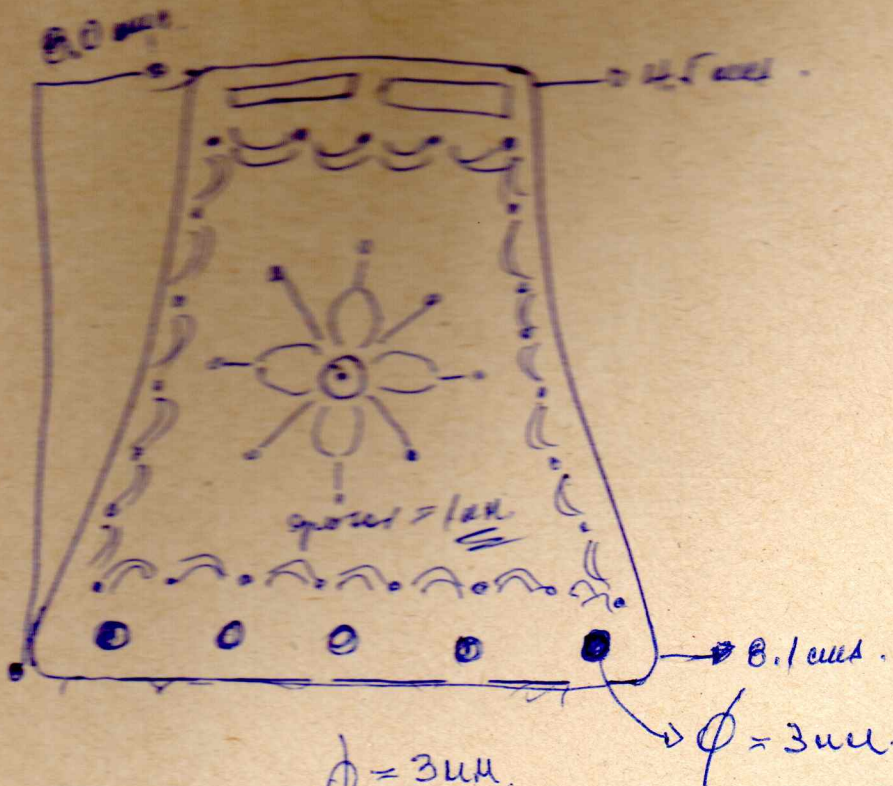 8.0 см.
4.5 см.
= 1мм
8.1 см.
ϕ = 3мм.
ϕ = 3мм.